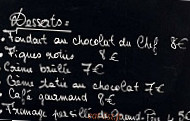 Desserts :
• Fondant au chocolat du Chef 8€
• Figues rôties 8€
• Crème brûlée 7€
• Crème de lait au chocolat 7€
• Café gourmand 8€
• Fromage